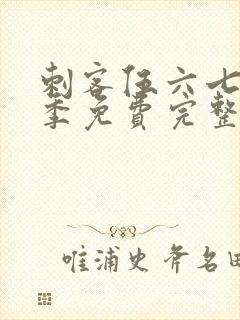 刺客伍六七
季免费完整
唯浦史斧名田